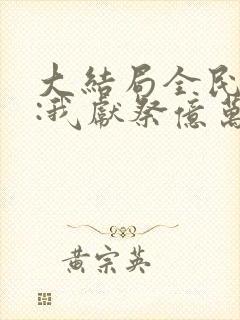 大結局全民
:我獻祭億萬
黃宗英